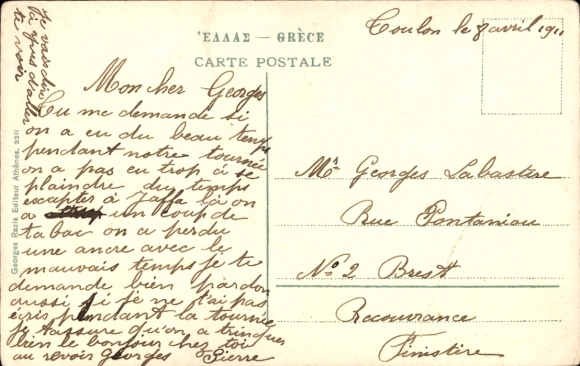 Toulon le 8 avril 1911
ἙΛΛΑΣ — GRÈCE
CARTE POSTALE
Mon cher Georges
Tu me demande si
on a eu du beau temps
pendant notre tournée
on a pas eu trop à se
plaindre du temps
excapter à Jaffa là on
a un coup de
tabac on a perdu
une ancre avec le
mauvais temps je te
demande bien pardon
aussi si je ne t'ai pas
écris pendant la tournée
Je t'assure qu'on a trinquer
bien le bonjour chez toi
au revoir Georges Pierre
Je vais dire
d'aller
te voir
Mr Georges Labastère
Rue Pontaniou
No 2 Brest
Recouvrance
Finistère
Georges Razis Editeur Athènes. 2211